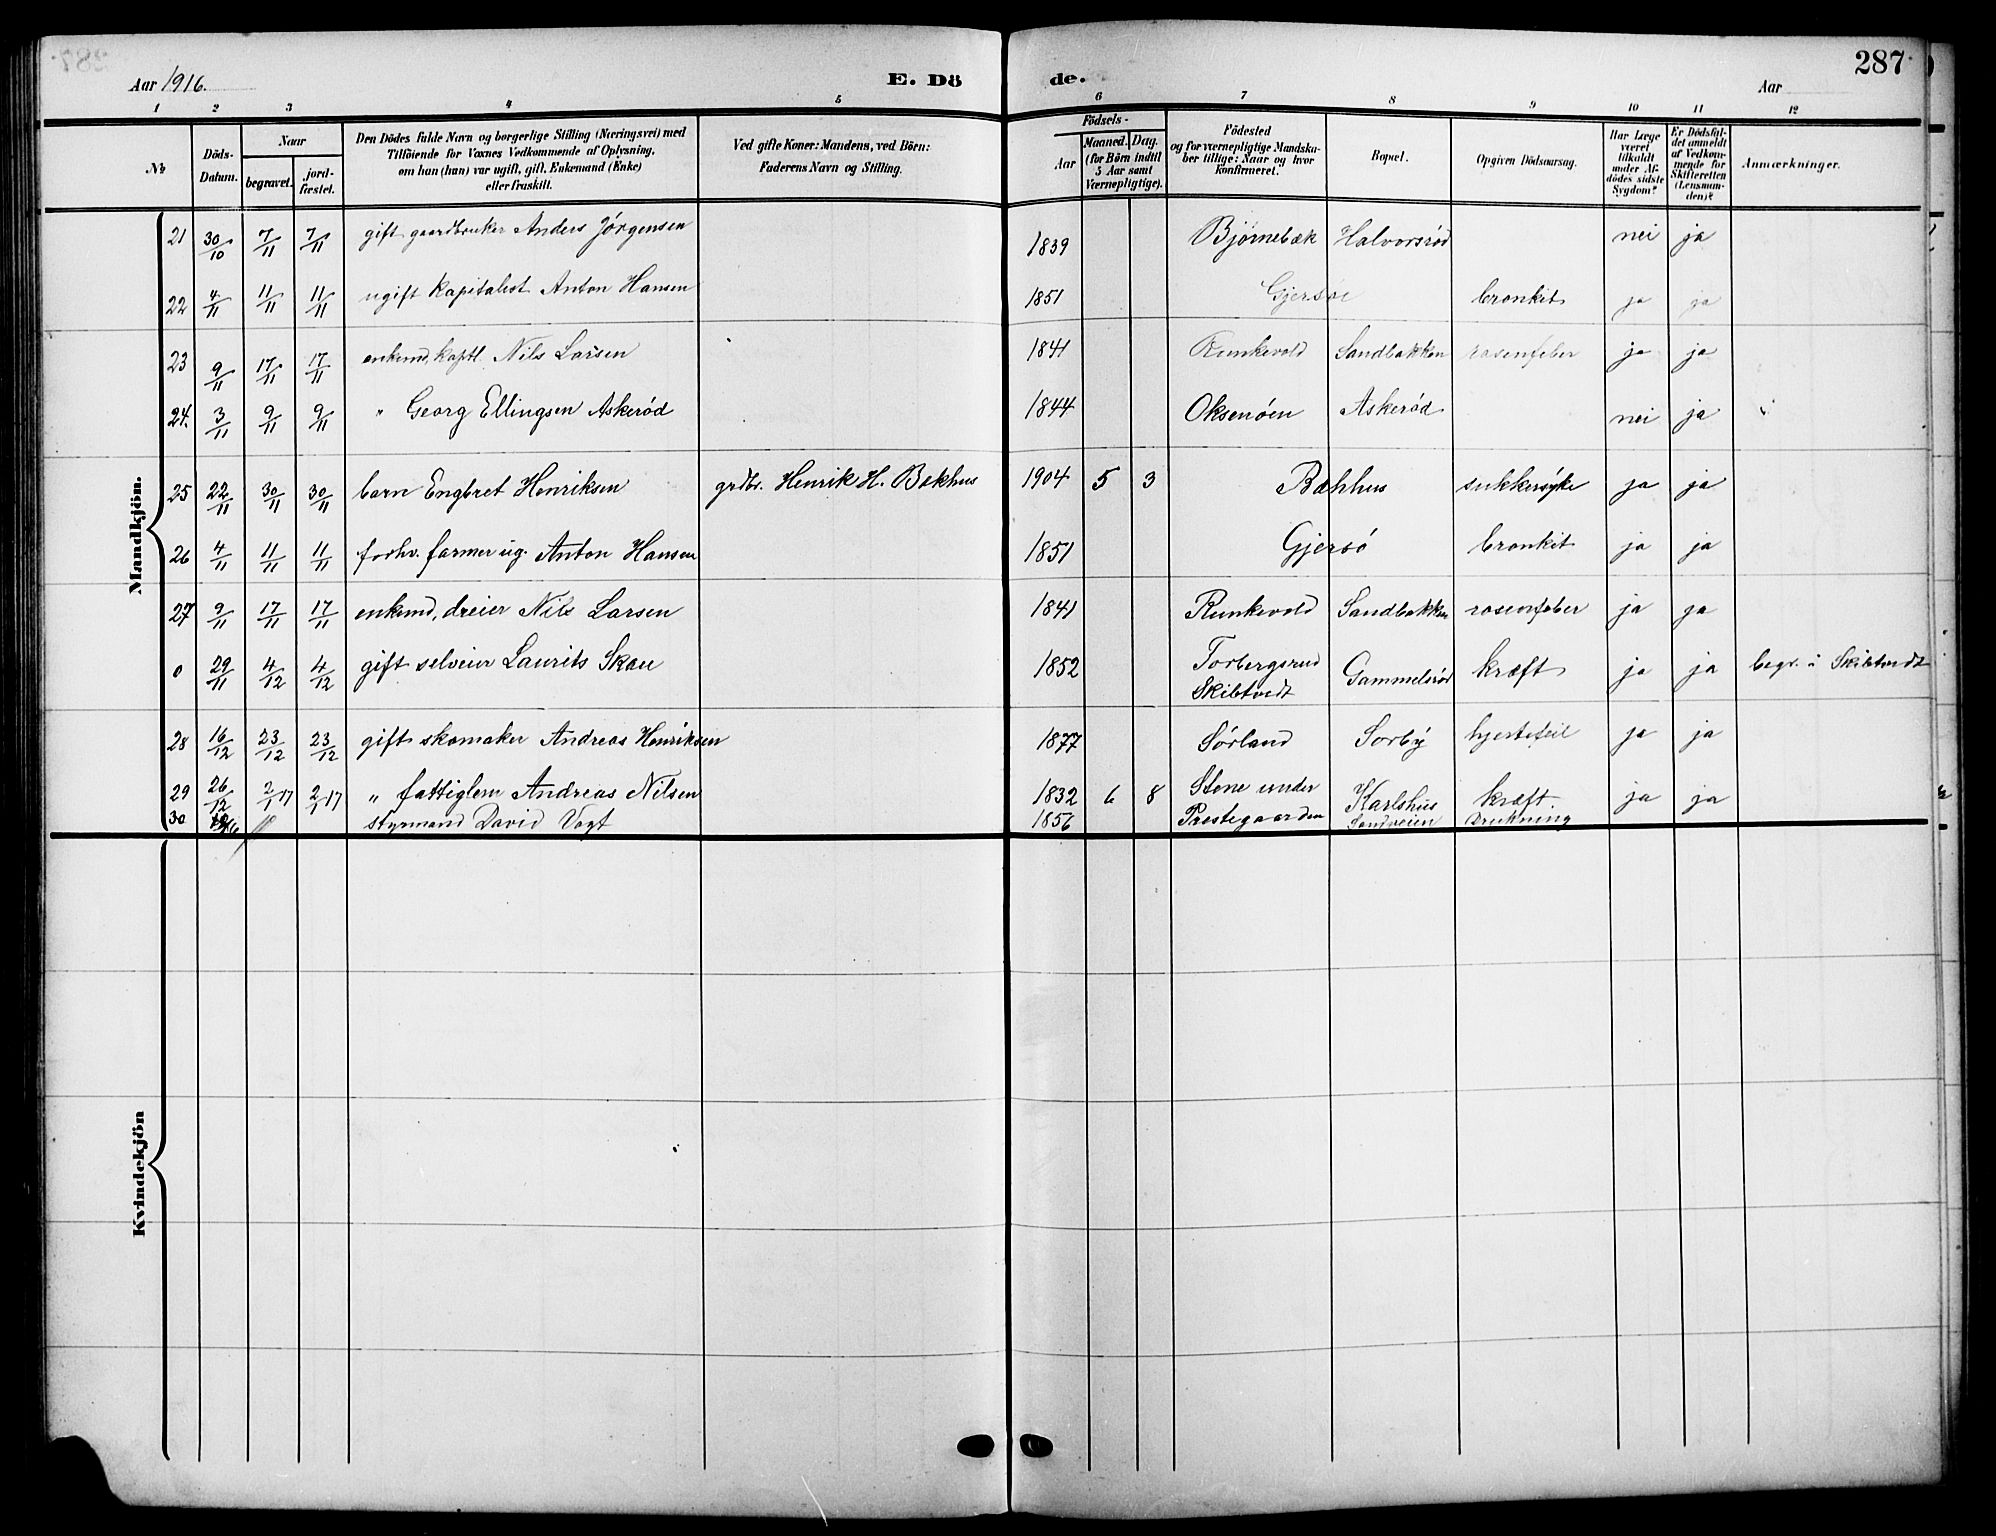 287
Aar 1916. E. Dö de. Aar
1 2 3 4 5 6 7 8 9 10 11 12
Nr
Döds-Datum.
Naar
begravet.
jord-fæstet.
Den Dödes fulde Navn og borgerlige Stilling (Næringsvei) med
Tilföiende for Voxnes Vedkommende af Oplysning,
om han (hun) var ugift, gift, Enkemand (Enke)
eller fraskilt.
Ved gifte Koner: Mandens, ved Börn:
Faderens Navn og Stilling.
Födsels-
Aar
Maaned. Dag.
(for Börn indtil
5 Aar samt
Værnepligtige).
Födested
og for værnepligtige Mandska-
ber tillige: Naar og hvor
konfirmeret.
Bopæl.
Opgiven Dödsaarsag.
Har Læge
været
tilkaldt
under Af-
dödes sidste
Sygdom?
Er Dödsfal-
det anmeldt
af Vedkom-
mende for
Skifteretten
(Lensman-
den)?
Anmærkninger.
Mandkjön.
21 30/10 7/11 7/11 gift gaardbruker Anders Jörgensen 1839 Bjørnebæk Halvorsrød nei ja
22 4/11 11/11 11/11 ugift kapitalist Anton Hansen 1851 Gjersøe bronkit ja ja
23 9/11 17/11 17/11 enkemd. kaptl. Nils Larsen 1841 Runkevold Sandbakken rosenfeber ja ja
24. 3/11 9/11 9/11 " Georg Ellingsen Askerød 1844 Oksenöen Askerød nei ja
25 22/11 30/11 30/11 barn Engbret Henriksen grdbr. Henrik H. Bakhus 1904 5 3 Bakhus sukkersyke ja ja
26 4/11 11/11 11/11 forhv. farmer ug. Anton Hansen 1851 Gjersö bronkit ja ja
27 9/11 17/11 17/11 enkemd, dreier Nils Larsen 1841 Runkevold Sandbakken rosenfeber ja ja
0 29/11 4/12 4/12 gift selveier Laurits Skau 1852 Torbergsrud Skibtvedt Gammelsrød kræft ja ja begr. i Skibtvedt
28 16/12 23/12 23/12 gift skomaker Andreas Henriksen 1877 Sørland Sorby hjertefeil ja ja
29 26/12 2/1 17 2/1 17 " fattiglem Andreas Nilsen 1832 6 8 Stene under Prestegaarden Karlshus kræft. ja ja
30 styrmand David Vogt 1856 Sandveien Drukning
Kvindekjön